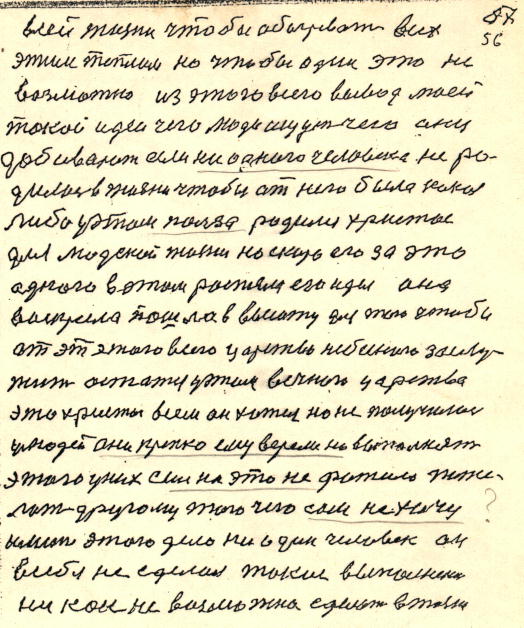 57
56
всей жизни чтобы обогревать всех
этим теплом но чтобы один это не
возможно из этого всего вывод моей
такой идеи чего люди ищут чего они
добиваются если ни одного человека не ро-
дилось в жизни чтобы от него была кака
либо у этом польза родили христос
для людской жизни но скоро его за это
одного в этом его идея она
воскресла пошла в высоту для того чтобы
от эт этого всего царство небесного заслу-
жить остаться у этом вечного царства
это христы всем он хотел но не получилось
у людей они крепко ему верели но выполнять
этого у них сил на это не
лать другому того чего сам не хочу ?
этого дело ни один человек он
в себя не сделал такие выполнения
ни как не возможна сделать в жизни